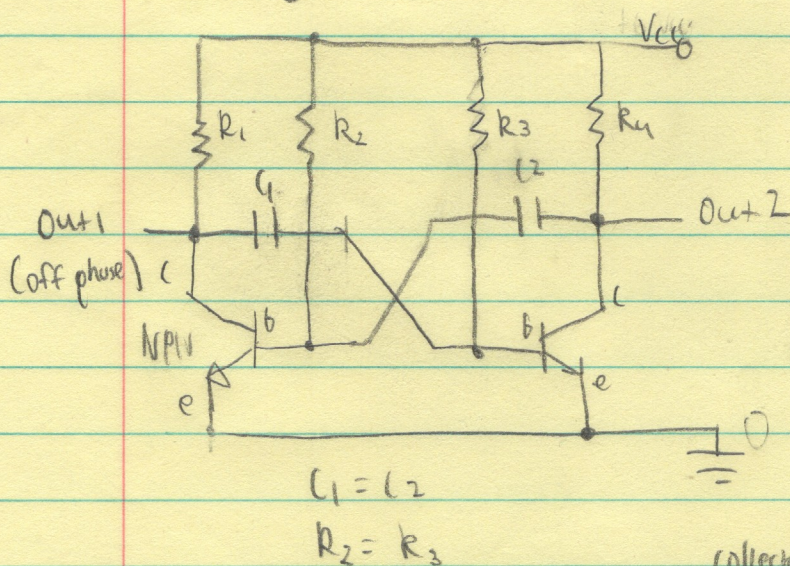 Vcc
R1
R2
R3
R4
C1
C2
Out1
Out 2
(off phase)
C
C
b
b
NPN
e
e
0
C1 = C2
R2 = R3